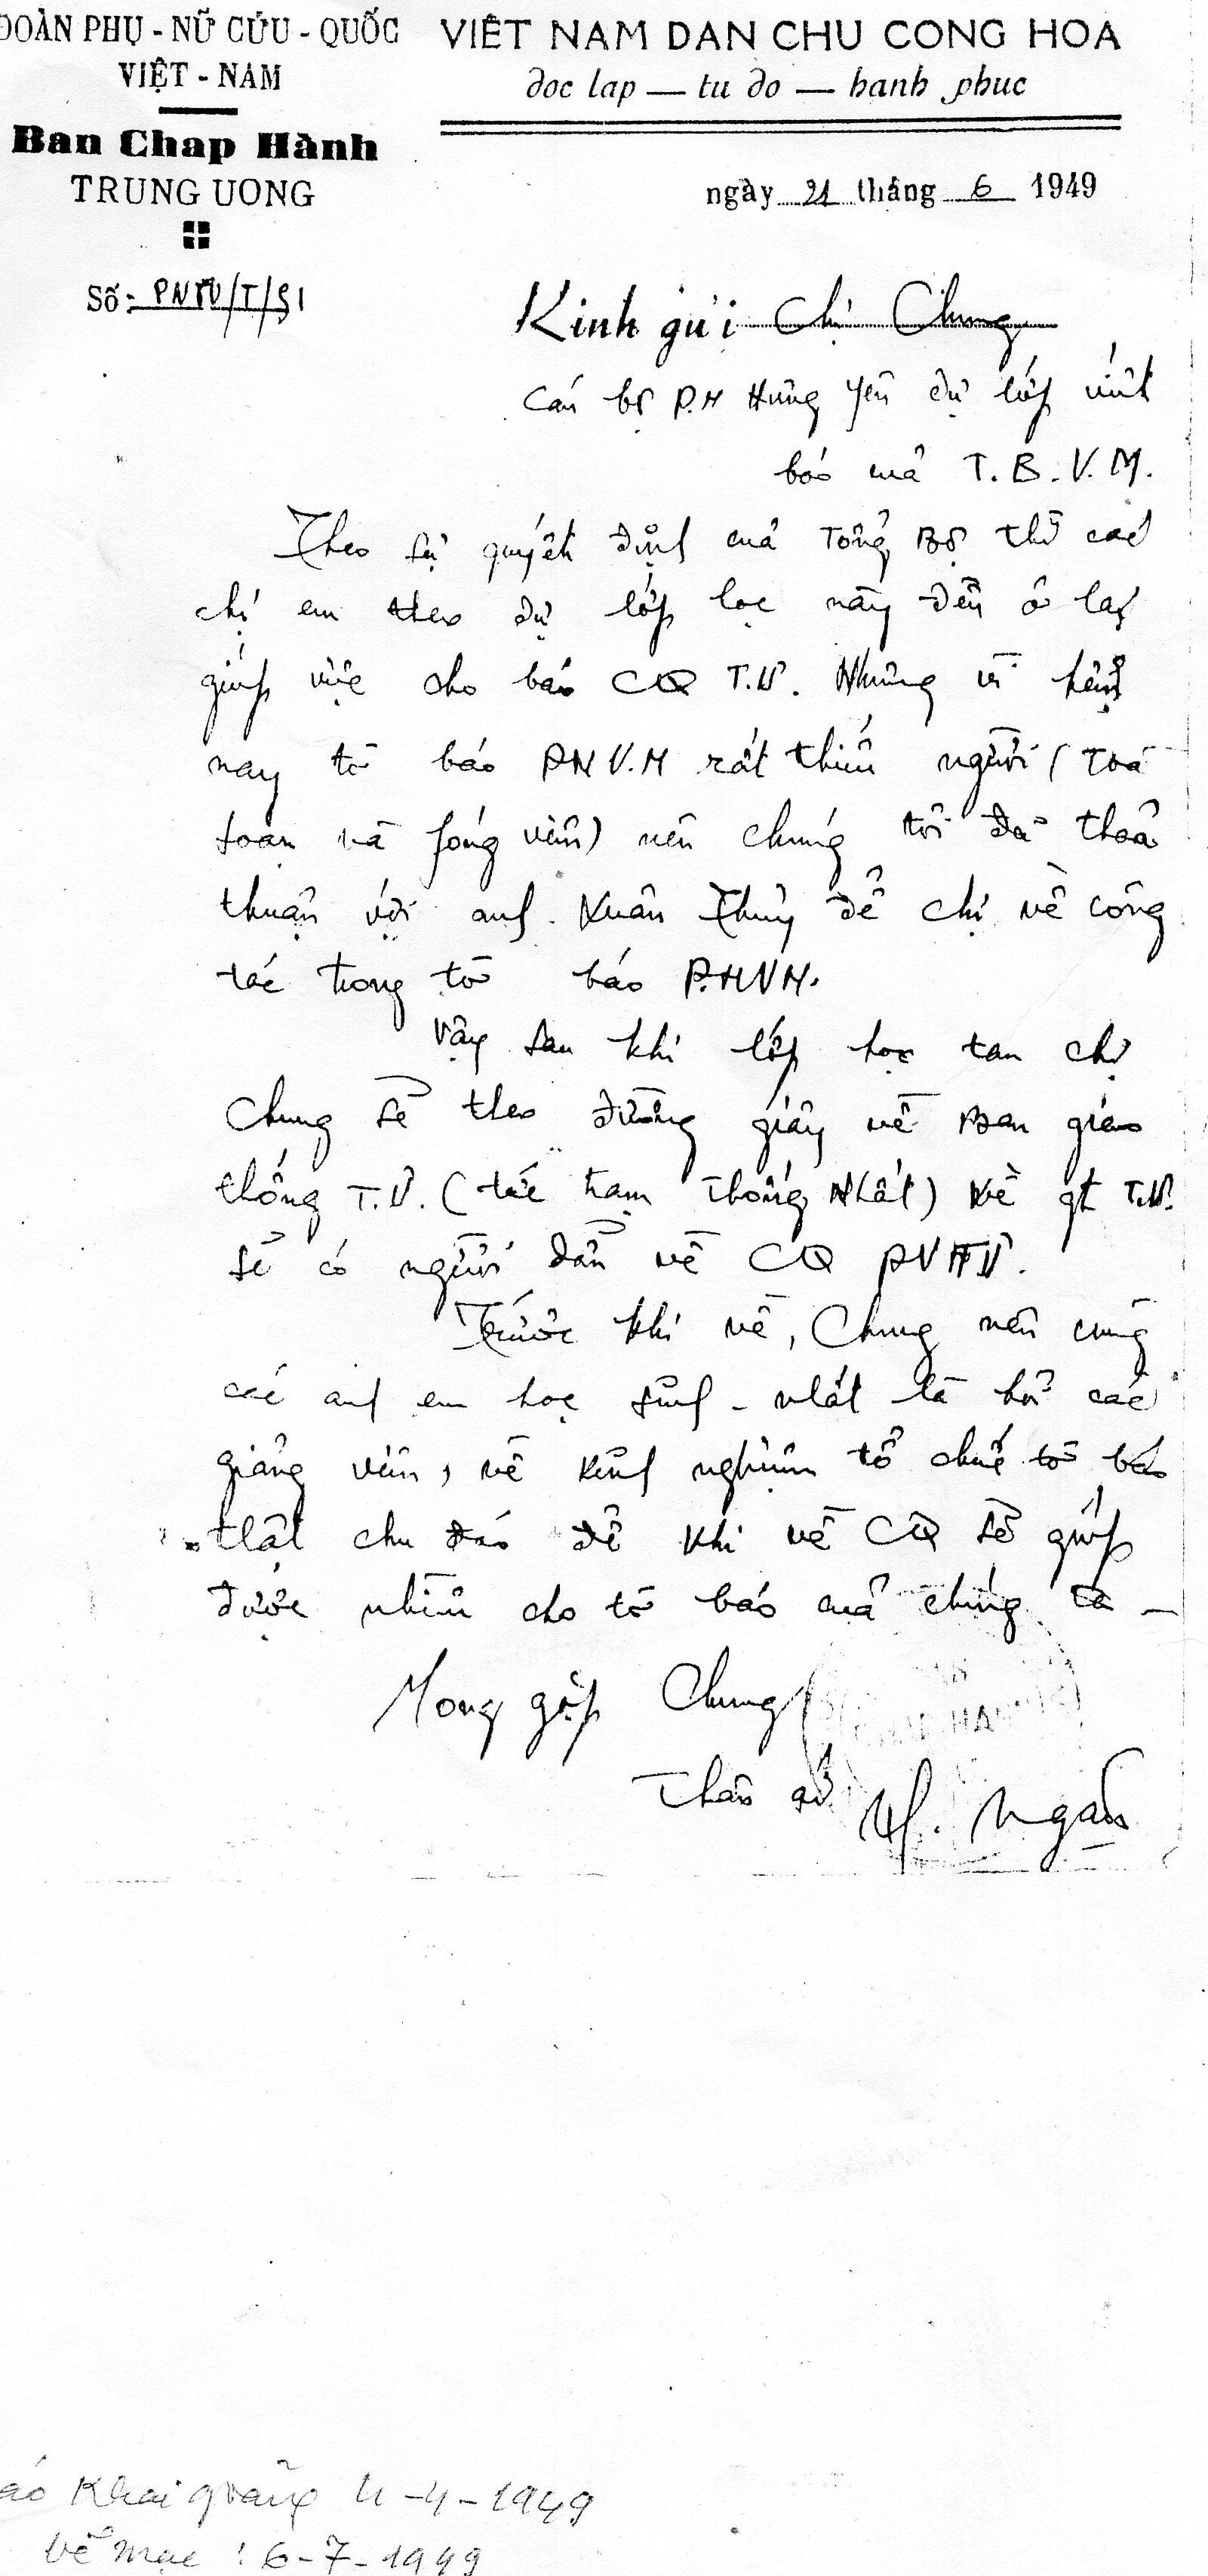 ĐOÀN PHỤ - NỮ CỨU - QUỐC
VIỆT - NAM
Ban Chap Hành
TRUNG UONG
Số: PNTU/T/51
VIÊT NAM DAN CHU CONG HOA
đoc lap — tu do — hanh phuc
ngày 21 tháng 6 1949
Kinh gửi Chị Chung
Cán bộ P.N Hưng Yên dự lớp viết
báo của T.B.V.M.
Theo sự quyết định của Tổng Bộ thì các
chị em theo dự lớp học này đều ở lại
giúp việc cho báo CQ T.Ư. Nhưng vì hện
nay tờ báo PNV.N rất thiếu người (toà
soạn và fóng viên) nên chúng tôi đã thoả
thuận với anh Xuân Thuỷ để chị về công
tác trong tờ báo P.NVN.
Vậy sau khi lớp học tan chị
Chung sẽ theo đường giây về Ban giao
thông T.Ư. (tức trạm Thống Nhất) Về gt T.Ư.
sẽ có người dẫn về CQ PNTƯ.
Trước khi về, Chung nên cùng
các anh em học sinh - nhất là hỏi các
giảng viên, về kinh nghiệm tổ chức tờ báo
thật chu đáo để khi về CQ sẽ giúp
được nhiều cho tờ báo của chúng ta -
Mong gặp Chung
Thân ái
Ngân
áo Khai giảng 4-4-1949
bế mạc : 6-7-1949